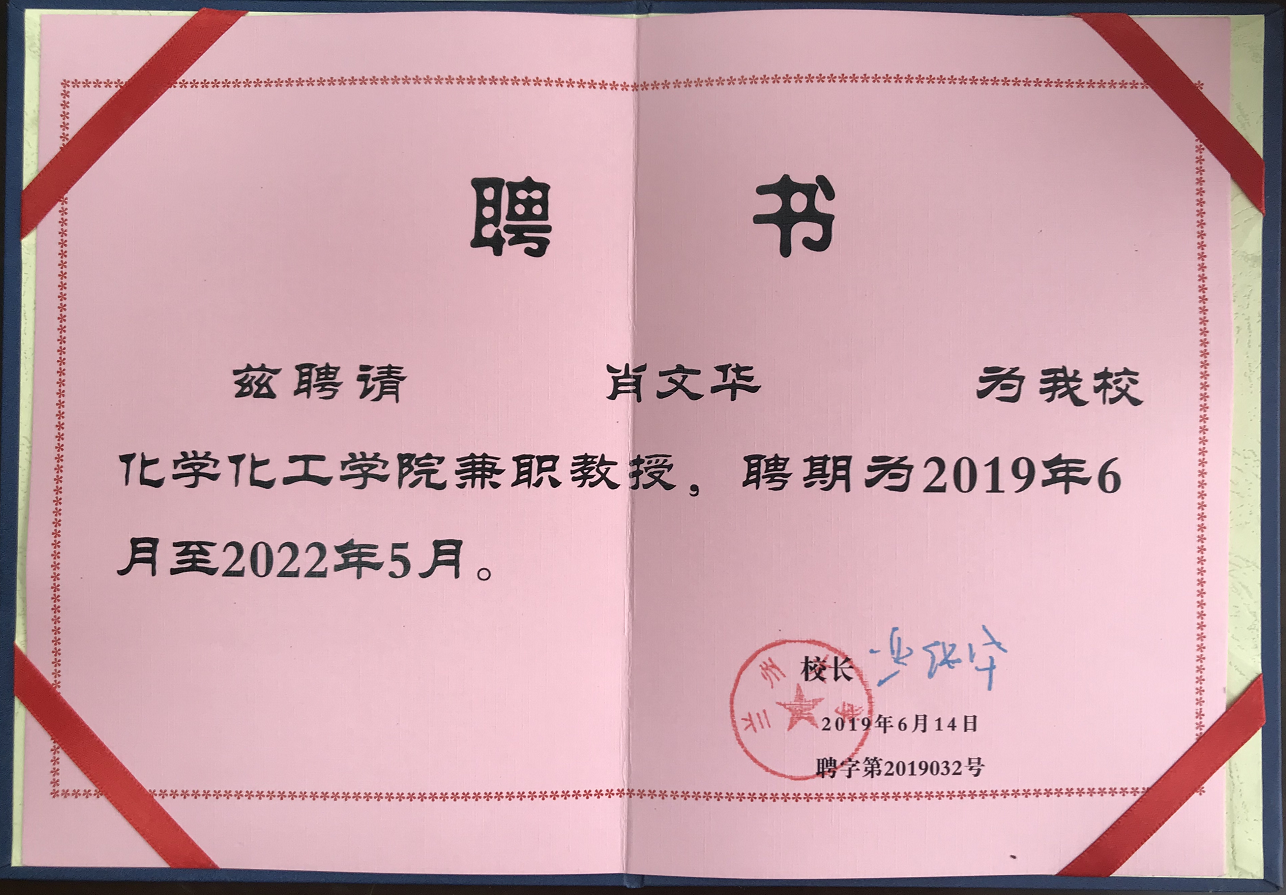 聘 书
兹聘请 肖文华 为我校
化学化工学院兼职教授，聘期为2019年6
月至2022年5月。
校长
2019年6月14日
聘字第2019032号
兰州大学